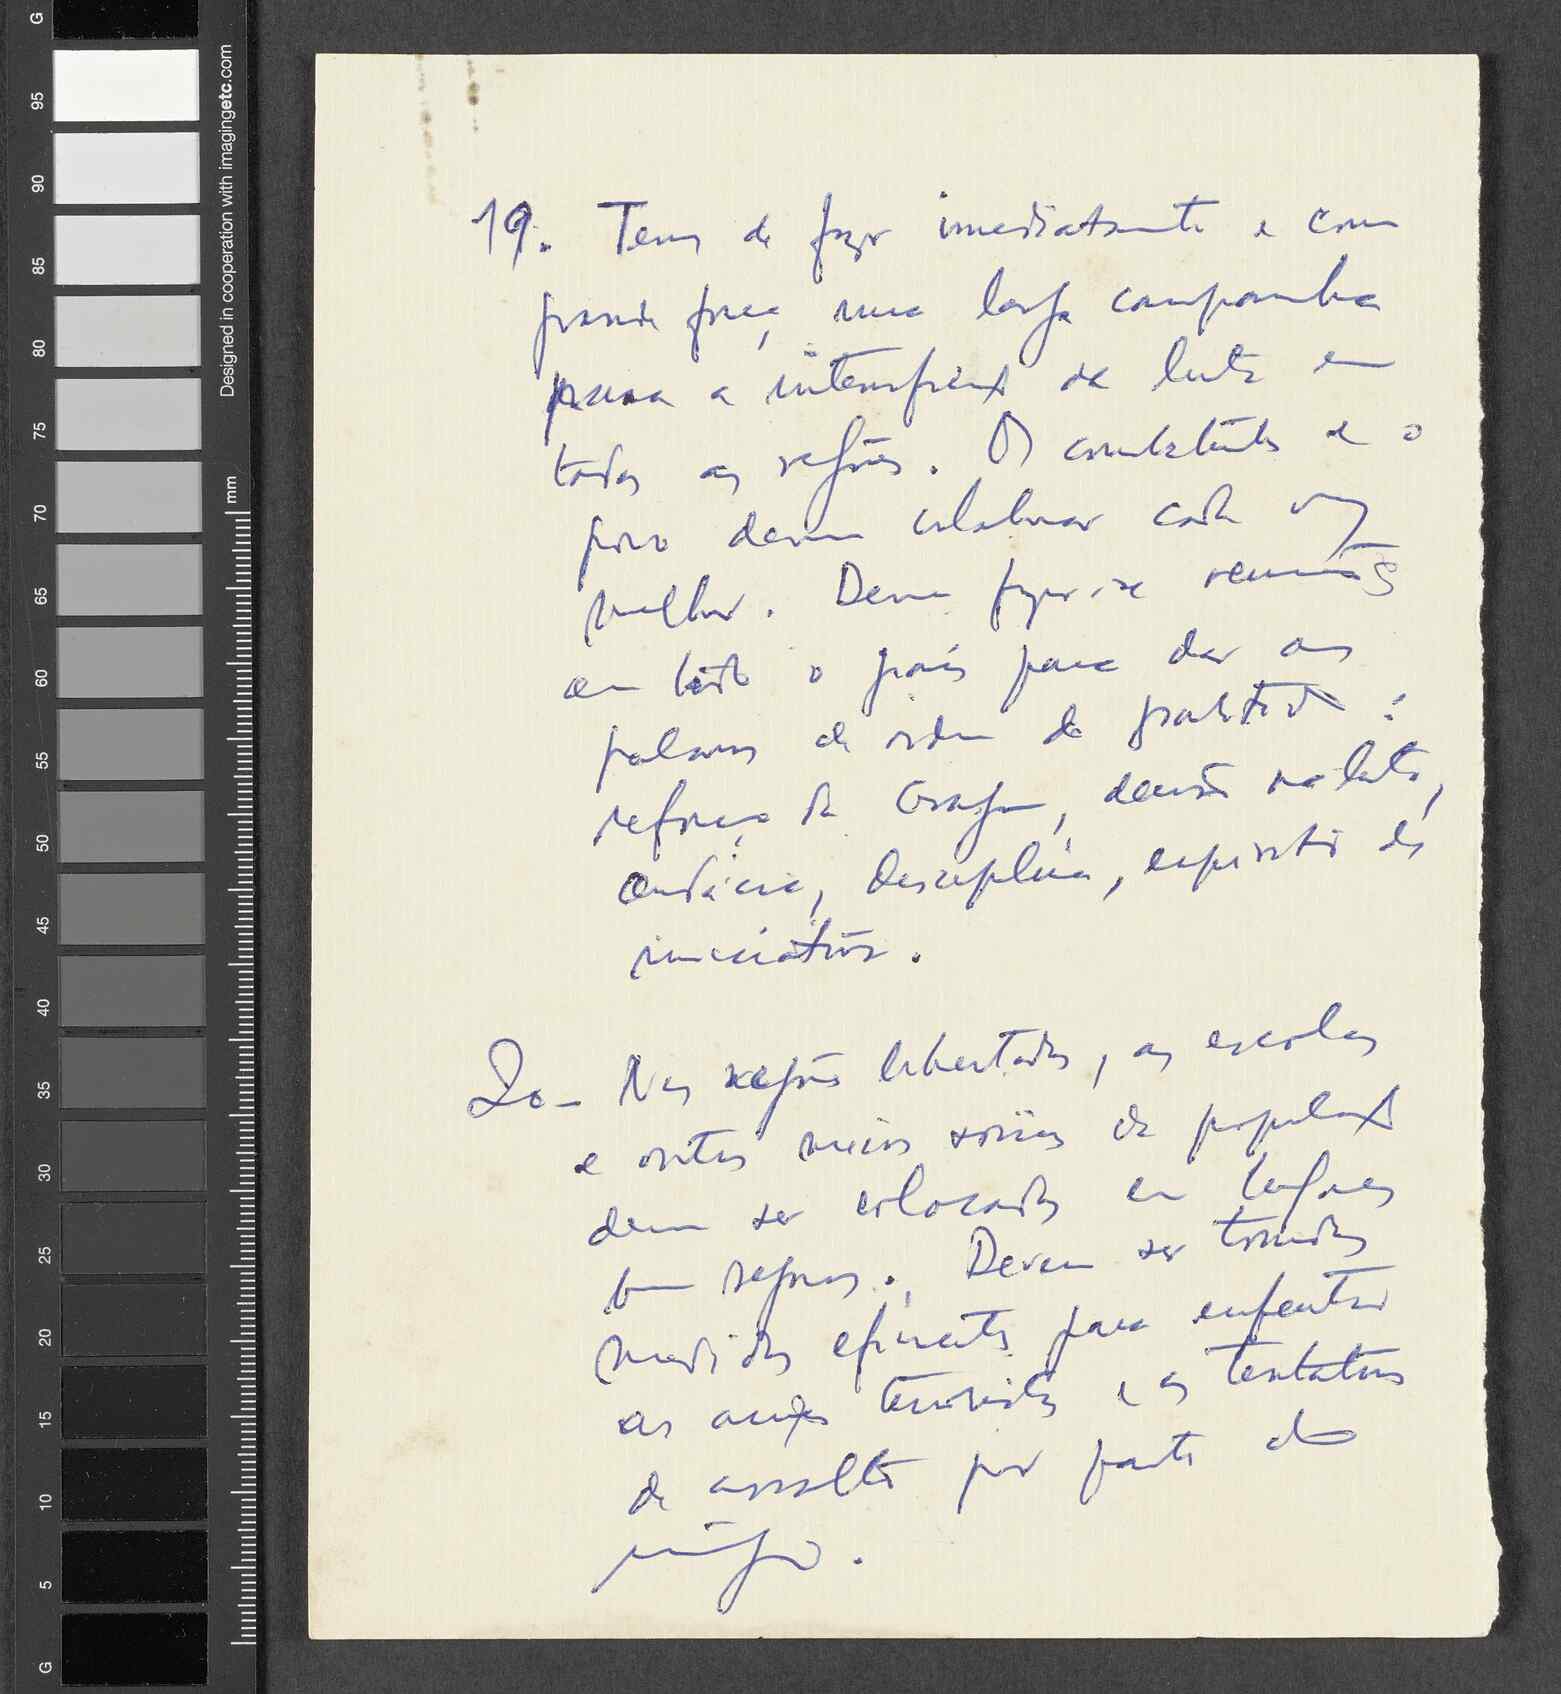 19. Temos de fazer imediatamente e com
grande força, uma larga campanha
para a intensificação da luta em
todas as regiões. Os combatentes e o
povo devem colaborar cada vez
melhor. Devem fazer-se reuniões
em todo o país para dar as
palavras de ordem do partido:
reforço da Organ, decisão na luta,
audácia, disciplina, espírito de
iniciativa.
20- Nas regiões libertadas, as escolas
e outros meios sociais da população
devem ser colocados em lugares
bem seguros. Devem ser tomadas
medidas eficientes para enfrentar
as acções terroristas e as tentativas
de assalto por parte do
inimigo.
Designed in cooperation with imagingetc.com
mm
G
95
90
85
80
75
70
65
60
55
50
45
40
35
30
25
20
15
10
5
G